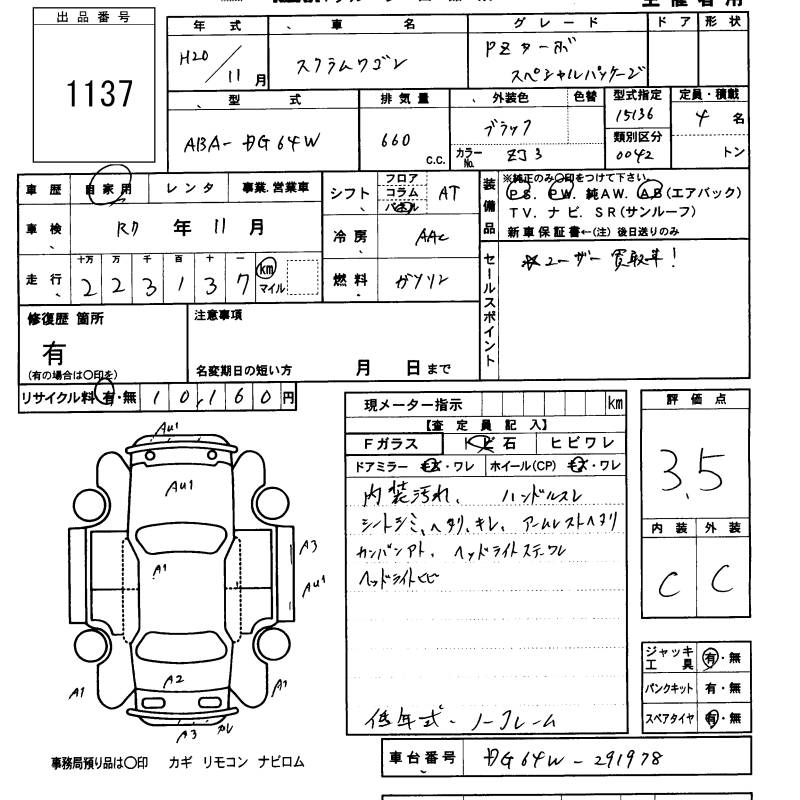 出品番号
1137
年式 車名 グレード ドア 形状
H20/11月 スクラムワゴン PZターボ
スペシャルパッケージ
型式 排気量 外装色 色替 型式指定 定員・積載
ABA-DG64W 660 c.c. ブラック 15136 4名
カラーNo. ZJ3 類別区分 0042 トン
車歴 自家用 レンタ 事業.営業車
シフト フロア コラム パネル AT
車検 R7年11月
冷房 AAC
走行 十万 万 千 百 十 一
223137 km マイル
燃料 ガソリン
装備品 ※純正のみ〇印をつけて下さい。
PS. PW. 純AW. AB(エアバック)
TV. ナビ. SR(サンルーフ)
新車保証書←(注)後日送りのみ
セールスポイント
※ユーザー買取車!
修復歴 箇所
有
(有の場合は〇印を)
注意事項
名変期日の短い方 月 日まで
リサイクル料 有・無 10,160円
現メーター指示 km
【査定員記入】
Fガラス トビ石 ヒビワレ
ドアミラー キズ・ワレ ホイール(CP) キズ・ワレ
内装汚れ、ハンドルスレ
シートシミ、ヘタリ、キレ、アームレストヘタリ
カンバンアト、ヘッドライトステーワレ
ヘッドライトヒビ
低年式・ノークレーム
評価点
3.5
内装 外装
C C
ジャッキ
工具 有・無
パンクキット 有・無
スペアタイヤ 有・無
AU1
AU1
A1
A3
AU1
A2
A1
A1
A3 カレ
事務局預り品は〇印 カギ リモコン ナビロム
車台番号 DG64W-291978